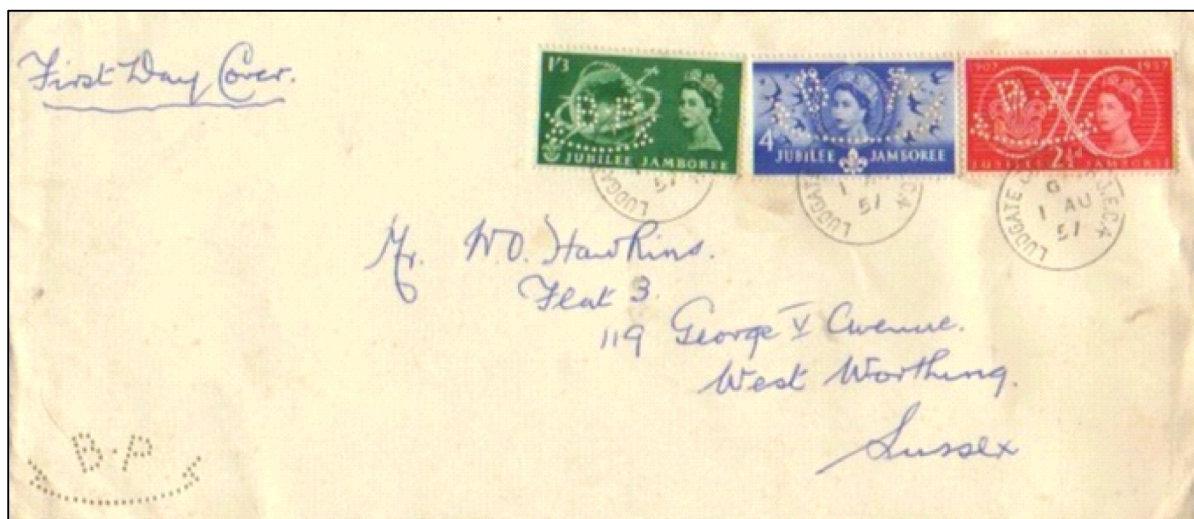 First Day Cover.
1/3
JUBILEE JAMBOREE
4
JUBILEE JAMBOREE
1907 1957
2½d
JUBILEE JAMBOREE
B.P.
LUDGATE
57
LUDGATE E.C.4
1
57
LUDGATE E.C.4
1 AU
57
Mr. W.O. Hawkins.
Flat 3.
119 George V Avenue.
West Worthing.
Sussex
B.P